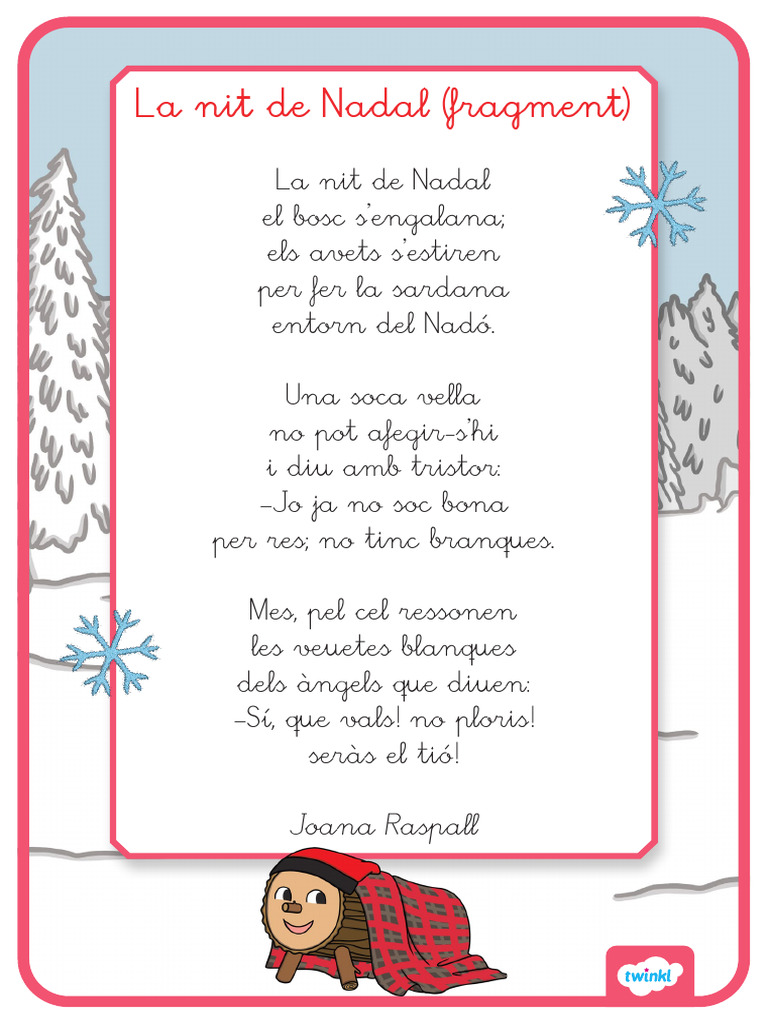 La nit de Nadal (fragment)
La nit de Nadal
el bosc s'engalana;
els avets s'estiren
per fer la sardana
entorn del Nadó.
Una soca vella
no pot afegir-s'hi
i diu amb tristor:
–Jo ja no soc bona
per res; no tinc branques.
Mes, pel cel ressonen
les veuetes blanques
dels àngels que diuen:
–Sí, que vals! no ploris!
seràs el tió!
Joana Raspall
twinkl